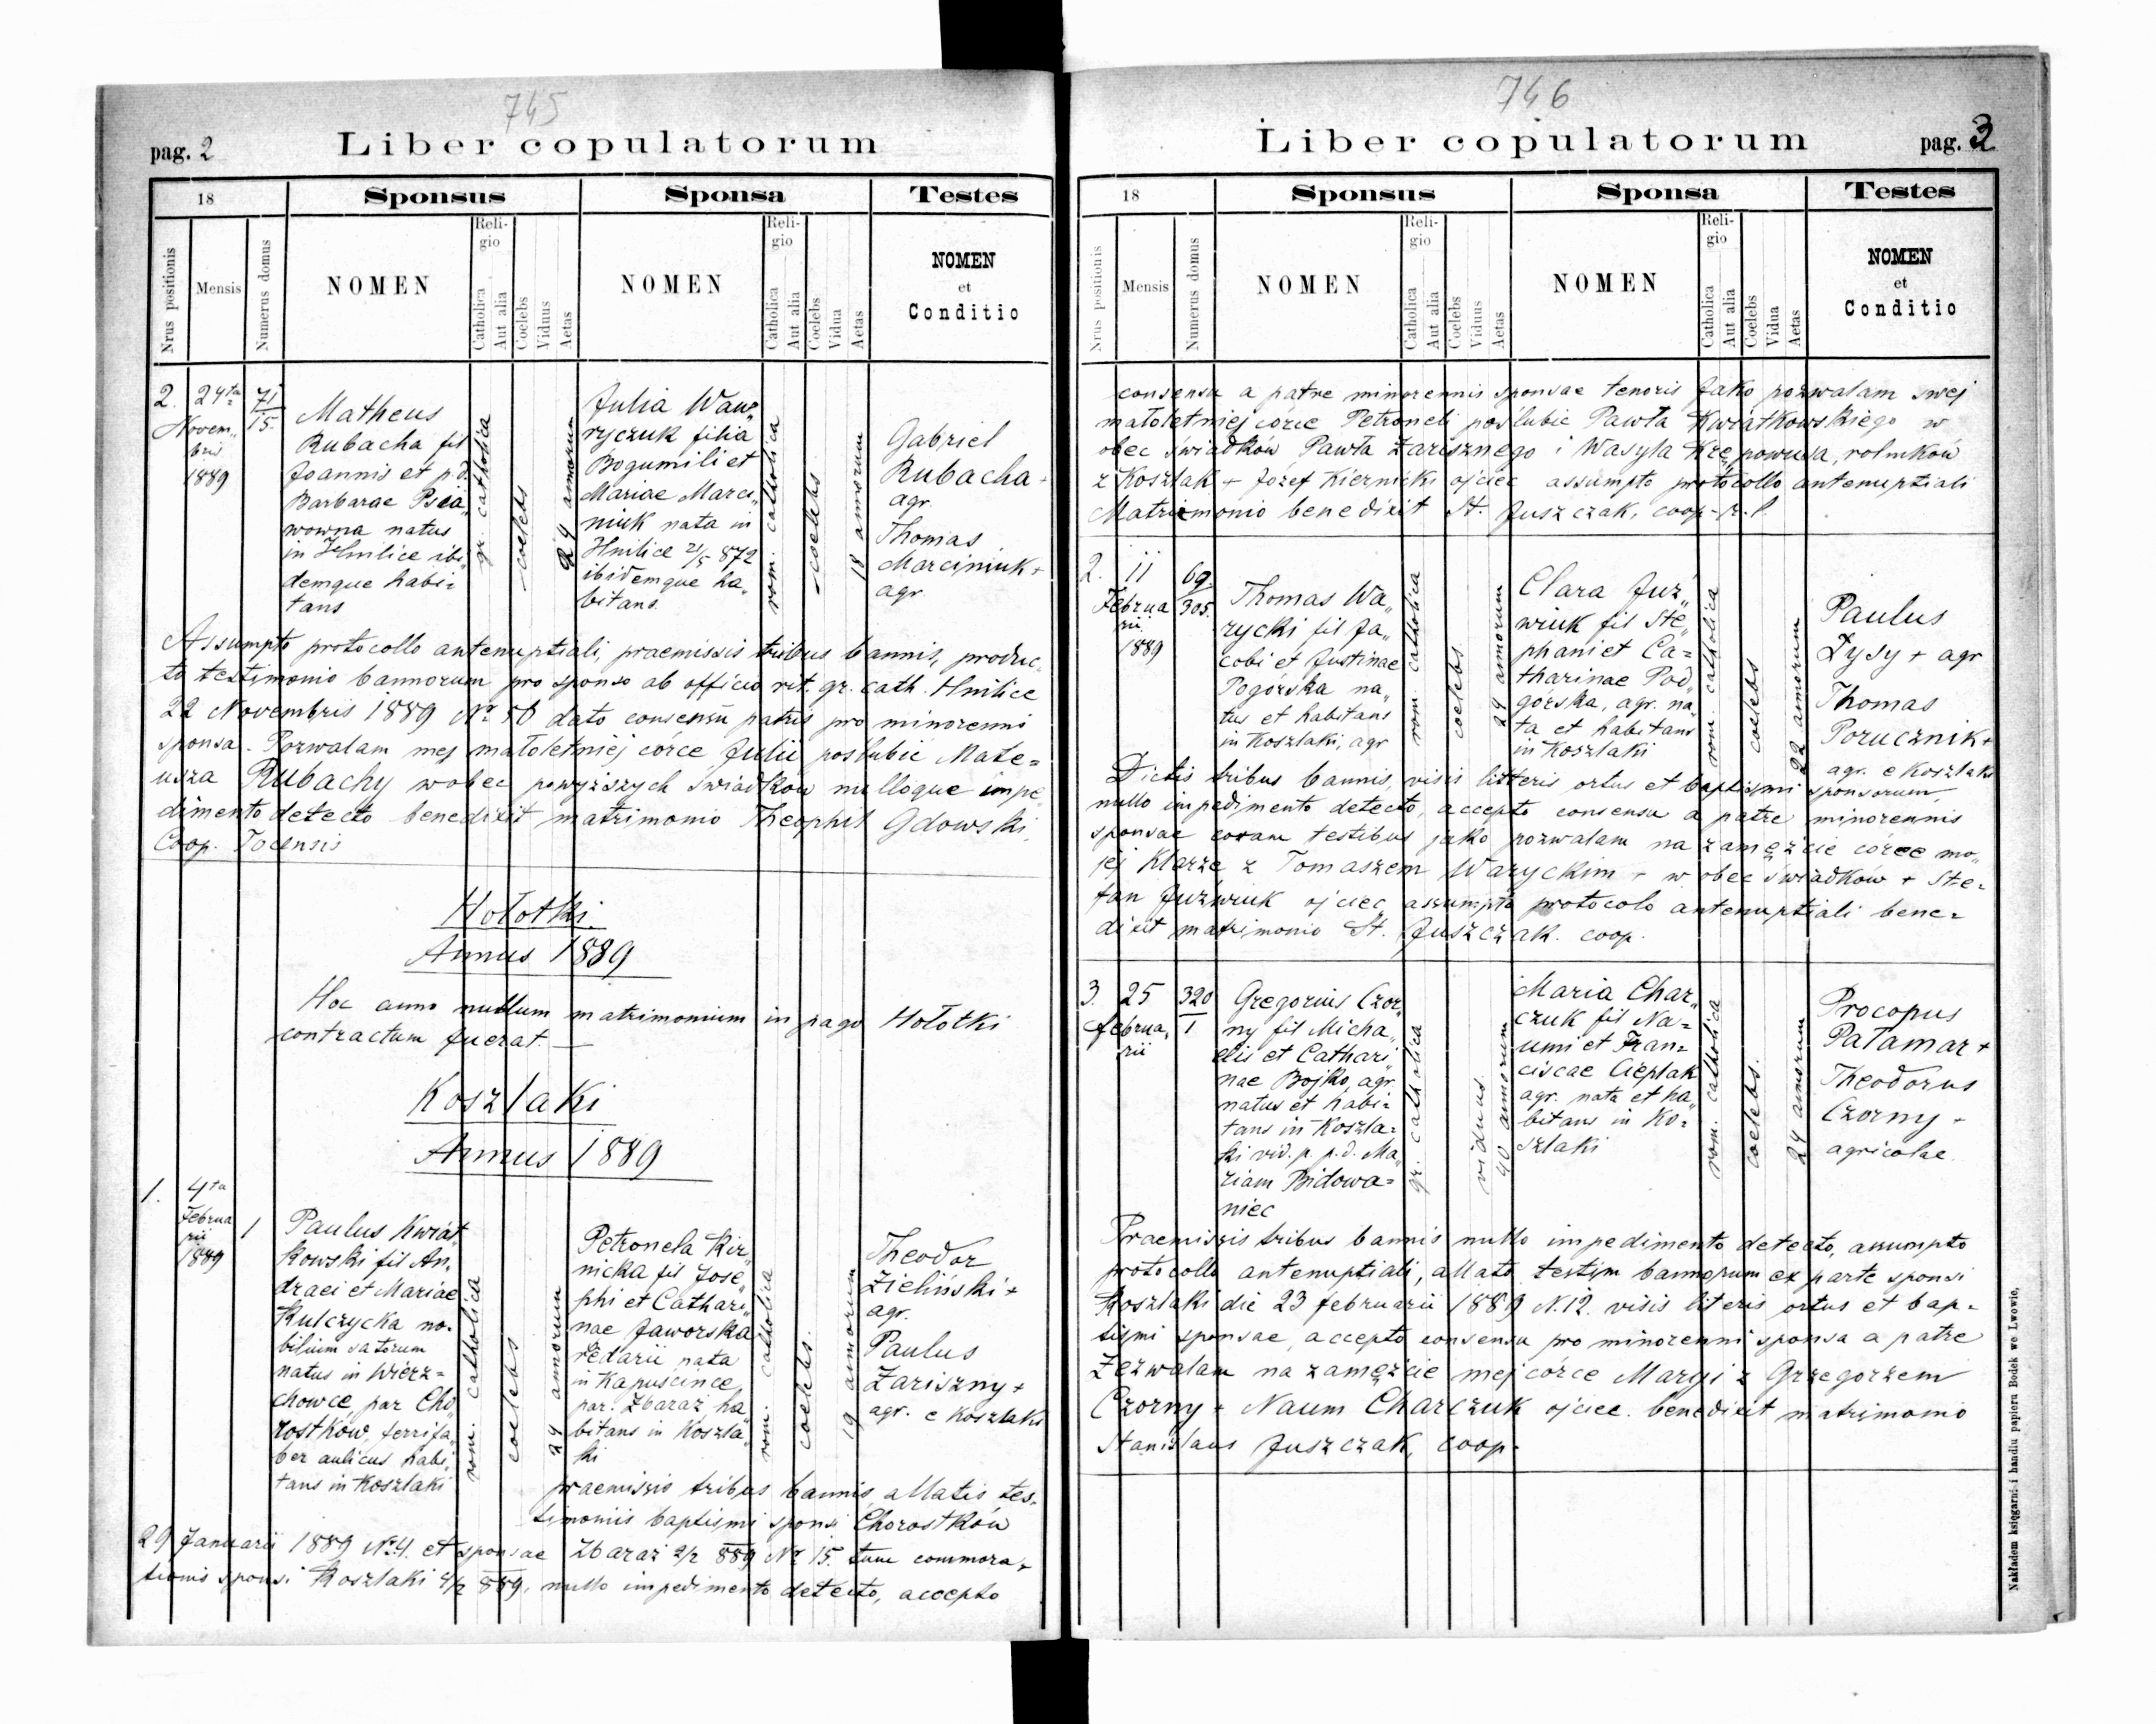 745
pag. 2
Liber copulatorum
18
Sponsus
Sponsa
Testes
Nrus positionis
Mensis
Numerus domus
NOMEN
Religio
Catholica
Aut alia
Coelebs
Viduus
Aetas
NOMEN
Religio
Catholica
Aut alia
Coelebs
Vidua
Aetas
NOMEN
et
Conditio
2.
24ta
Novem„
bris
1889
71
15.
Matheus
Rubacha fil
Joannis et p.d.
Barbarae
wowna natus
in Hnilice ibi„
demque habi=
tans
gr. catholica
coelebs
24 annorum
Julia Waw„
ryczuk filia
Bogumili et
Mariae Marci„
niuk nata in
Hnilice 21/5 872
ibidemque ha„
bitans.
rom. catholica
coelebs
18 annorum
Gabriel
Rubacha +
agr.
Thomas
Marciniuk +
agr.
Assumpto protocollo antenuptiali, praemissis tribus bannis, produc„
to testimonio bannorum pro sponso ab officio rit. gr. cath. Hnilice
22 Novembris 1889 No 56 dato consensu patris pro minorenni
sponsa. Pozwalam mej małoletniej córce Julii poslubic Mate=
usza Rubachy wobec powyższych świadków nulloque impe„
dimento detecto benedixit matrimonio Theophil Gdowski
Coop. Tocensis
Hołotki.
Annus 1889
Hoc anno nullum matrimonium in pago Hołotki
contractum fuerat. —
Koszlaki
Annus 1889
1.
4ta
Februa
rii
1889
1
Paulus Kwiat
kowski fil An„
draei et Mariae
Kulczycka no=
bilium satorum
natus in Wierz=
chowce, par Cho
rostków, ferrifa„
ber aulicus habi„
tans in Koszlaki
rom. catholica
coelebs
24 annorum
Petronela Kir„
nicka fil Jose„
phi et Cathari„
nae Jaworska
redarii nata
in Kapuscince
par. Zbaraż ha
bitans in Koszla„
ki
rom. catholica
coelebs.
19 annorum
Theodor
Zieliński +
agr.
Paulus
Zariszny +
agr. e Koszlaki
praemissis tribus bannis, allatis tes„
timoniis baptismi sponsi Chorostków
29 Januarii 1889 No 4. et sponsae Zbaraż 2/2 889 No 15. tum commora„
tionis sponsi Koszlaki 4/2 889, nullo impedimento detecto, accepto
746
Liber copulatorum
pag. 3
18
Sponsus
Sponsa
Testes
Nrus positionis
Mensis
Numerus domus
NOMEN
Religio
Catholica
Aut alia
Coelebs
Viduus
Aetas
NOMEN
Religio
Catholica
Aut alia
Coelebs
Vidua
Aetas
NOMEN
et
Conditio
consensu a patre minorennis sponsae tenoris Jako pozwalam swej
małoletniej córce Petroneli poślubic Pawła Kwiatkowskiego w
obec świadków Pawła Zarisznego i Wasyla rolników
z Koszlak + Józef Kiernicki ojciec assumpto protocollo antenuptiali
Matrimonio benedixit St. Juszczak, coop. r. l.
2.
11
Februa
rii
1889
69.
305.
Thomas Wa„
rycki fil Ja„
cobi et Justinae
Pogórska na„
tus et habitans
in Koszlaki, agr
rom. catholica
coelebs
24 annorum
Clara Juź„
wiuk fil Ste„
phani et Ca=
tharinae Pod„
górska, agr. na„
ta et habitans
in Koszlaki
rom. catholica
coelebs
22 annorum
Paulus
Łysy + agr
Thomas
Porucznik +
agr. e Koszlaki
Dictis tribus bannis, visis litteris ortus et baptismi sponsorum,
nullo impedimento detecto, accepto consensu a patre minorennis
sponsae coram testibus jako pozwalam na zamęźcie córce mo„
jéj Klarze z Tomaszem Waryckim + w obec świadków + Ste=
fan Juźwiuk ojciec, assumpto protocolo antenuptiali bene=
dixit matrimonio St. Juszczak. coop.
3.
25
februa„
rii
320
1
Gregorius Czor„
ny fil Micha„
elis et Cathari„
nae Bojko, agr.
natus et habi=
tans in Koszla=
ki vid. p. p.d. Ma„
riam Bidowa=
niec
gr. catholica
viduus.
40 annorum
Maria Char„
czuk fil Na=
umi et Fran=
ciscae Cieplak
agr. nata et ha„
bitans in Ko=
szlaki
rom. catholica
coelebs.
24 annorum
Procopus
Pałamar +
Theodorus
Czorny +
agricolae
Praemissis tribus bannis nullo impedimento detecto, assumpto
protocollo antenuptiali, allato testim bannorum ex parte sponsi
Koszlaki die 23 februarii 1889 N. 12. visis literis ortus et bap=
tismi sponsae, accepto consensu pro minorenni sponsa a patre
Zezwalam na zamęźcie mej córce Maryi z Grzegorzem
Czorny + Naum Charczuk ojciec. benedixit matrimonio
Stanislaus Juszczak, coop.
Nakładem księgarni i handlu papieru Bodek we Lwowie,